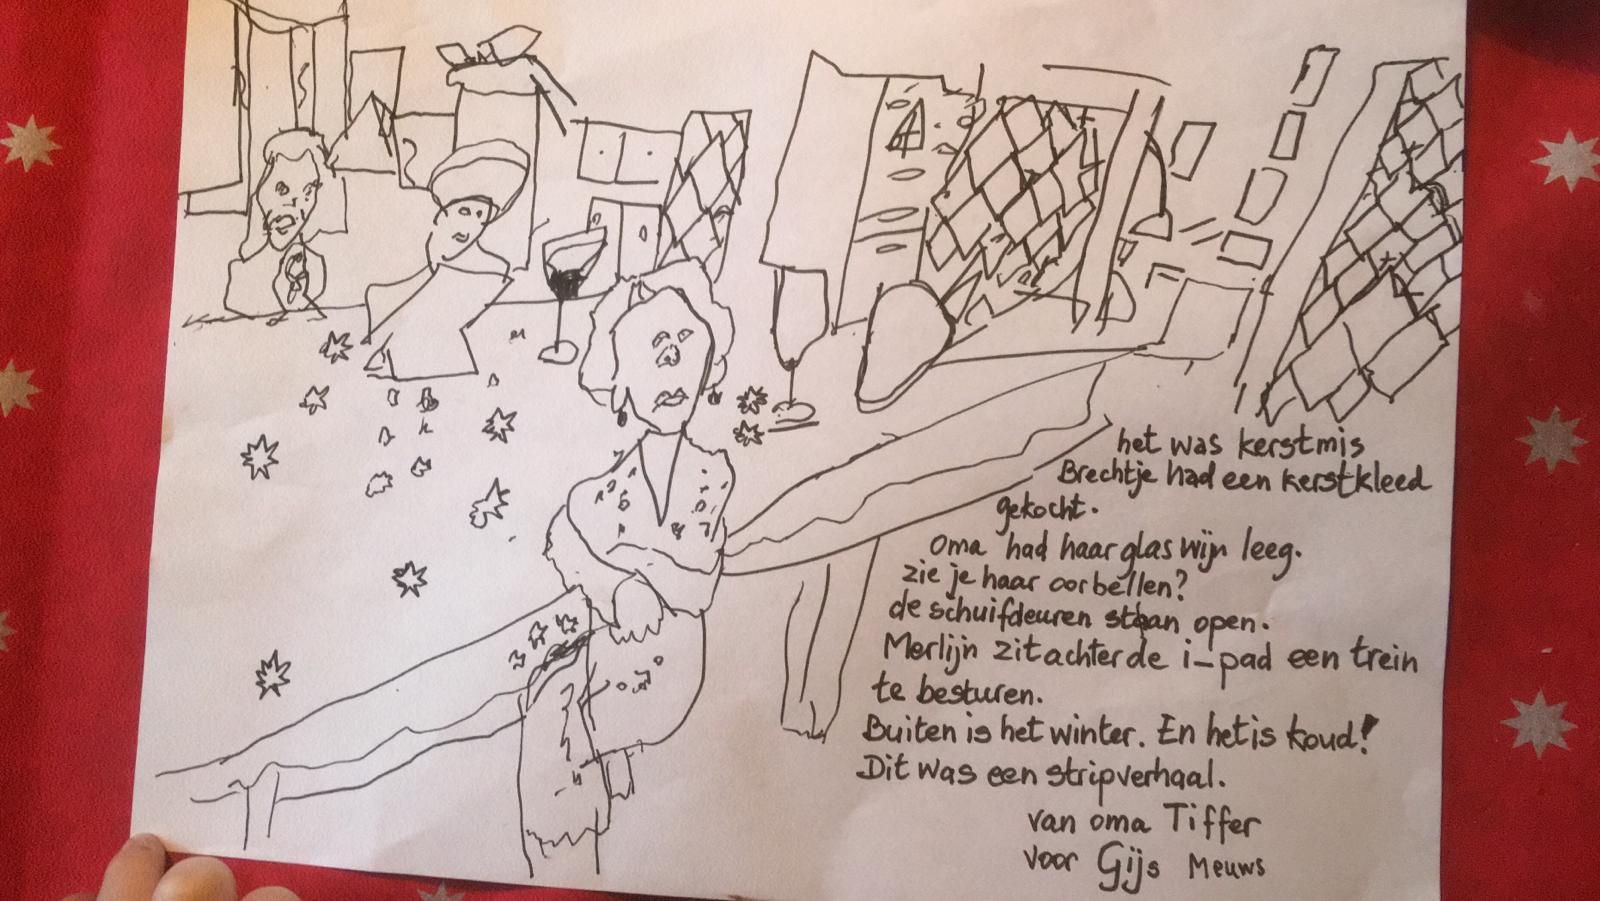 het was kerstmis
Brechtje had een kerstkleed
gekocht.
Oma had haar glas wijn leeg.
zie je haar oorbellen?
de schuifdeuren staan open.
Merlijn zit achter de i-pad een trein
te besturen.
Buiten is het winter. En het is koud!
Dit was een stripverhaal.
van oma Tiffer
voor Gijs Meuws